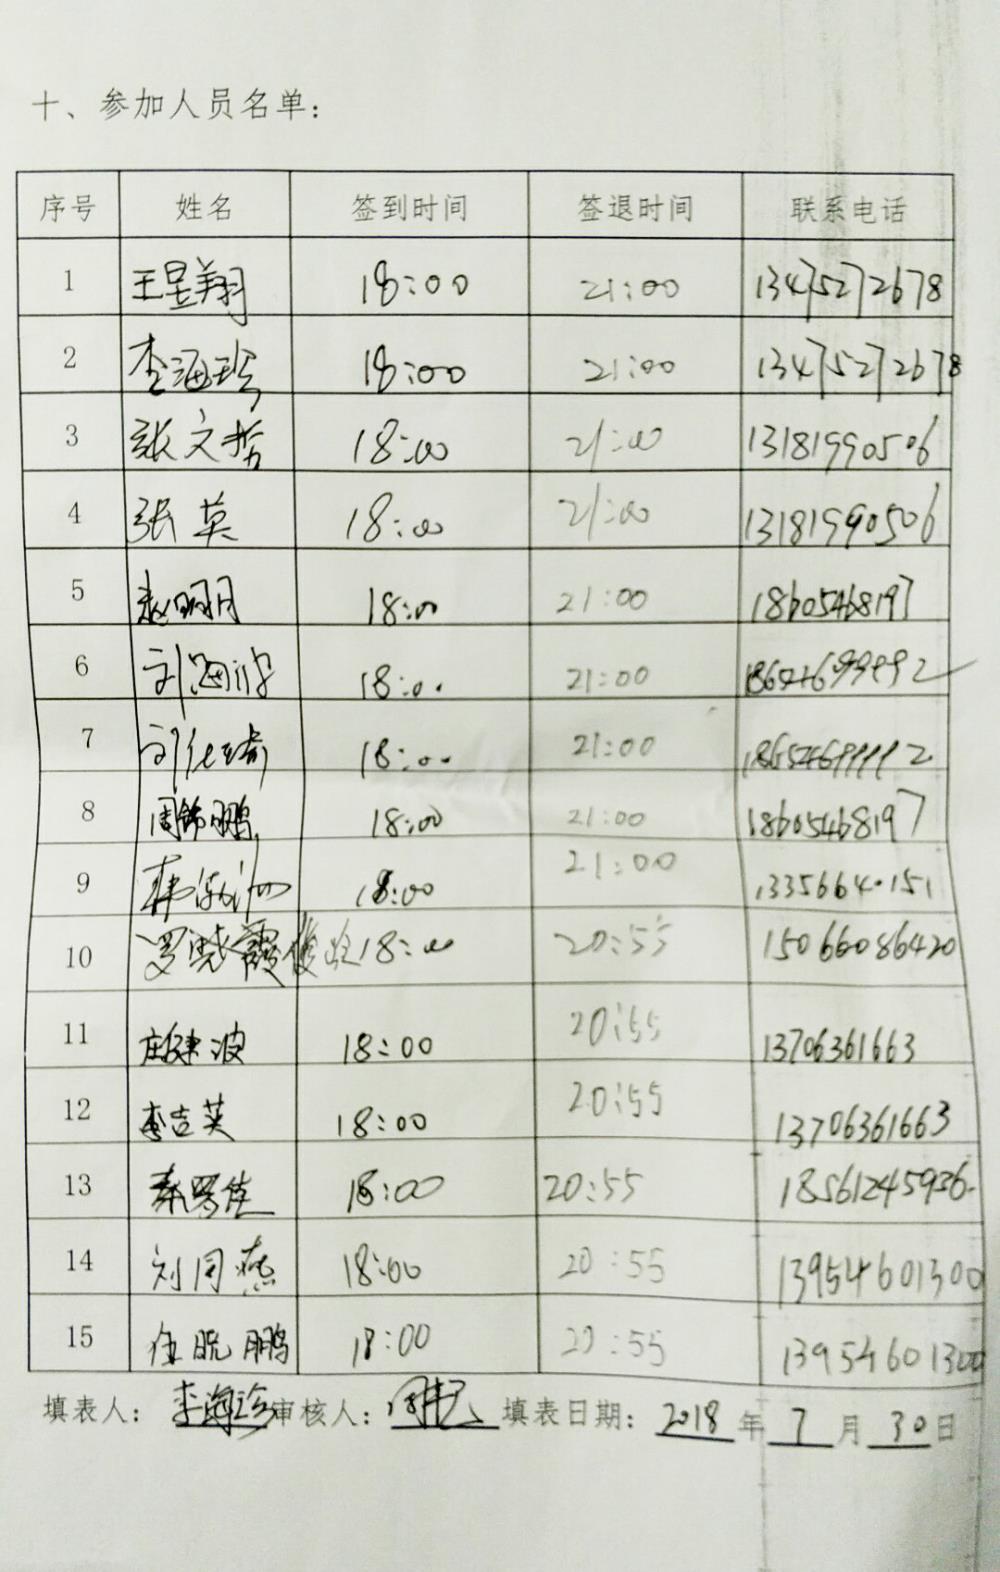 十、参加人员名单：
序号 姓名 签到时间 签退时间 联系电话
1 王昱翔 18:00 21:00 13475272678
2 李海珍 18:00 21:00 13475272678
3 张文哲 18:00 21:00 13181990506
4 张英 18:00 21:00 13181990506
5 赵明月 18:00 21:00 18605468197
6 刘海 18:00 21:00 18654699992
7 刘 18:00 21:00 18654699992
8 周锦鹏 18:00 21:00 18605468197
9 18:00 21:00 13356640151
10 罗晓霞 18:00 20:55 15066086420
11 庄健波 18:00 20:55 13706361663
12 李吉英 18:00 20:55 13706361663
13 秦 18:00 20:55 18561245936
14 刘同燕 18:00 20:55 13954601300
15 任 鹏 18:00 20:55 13954601300
填表人：李海珍 审核人： 填表日期：2018年7月30日